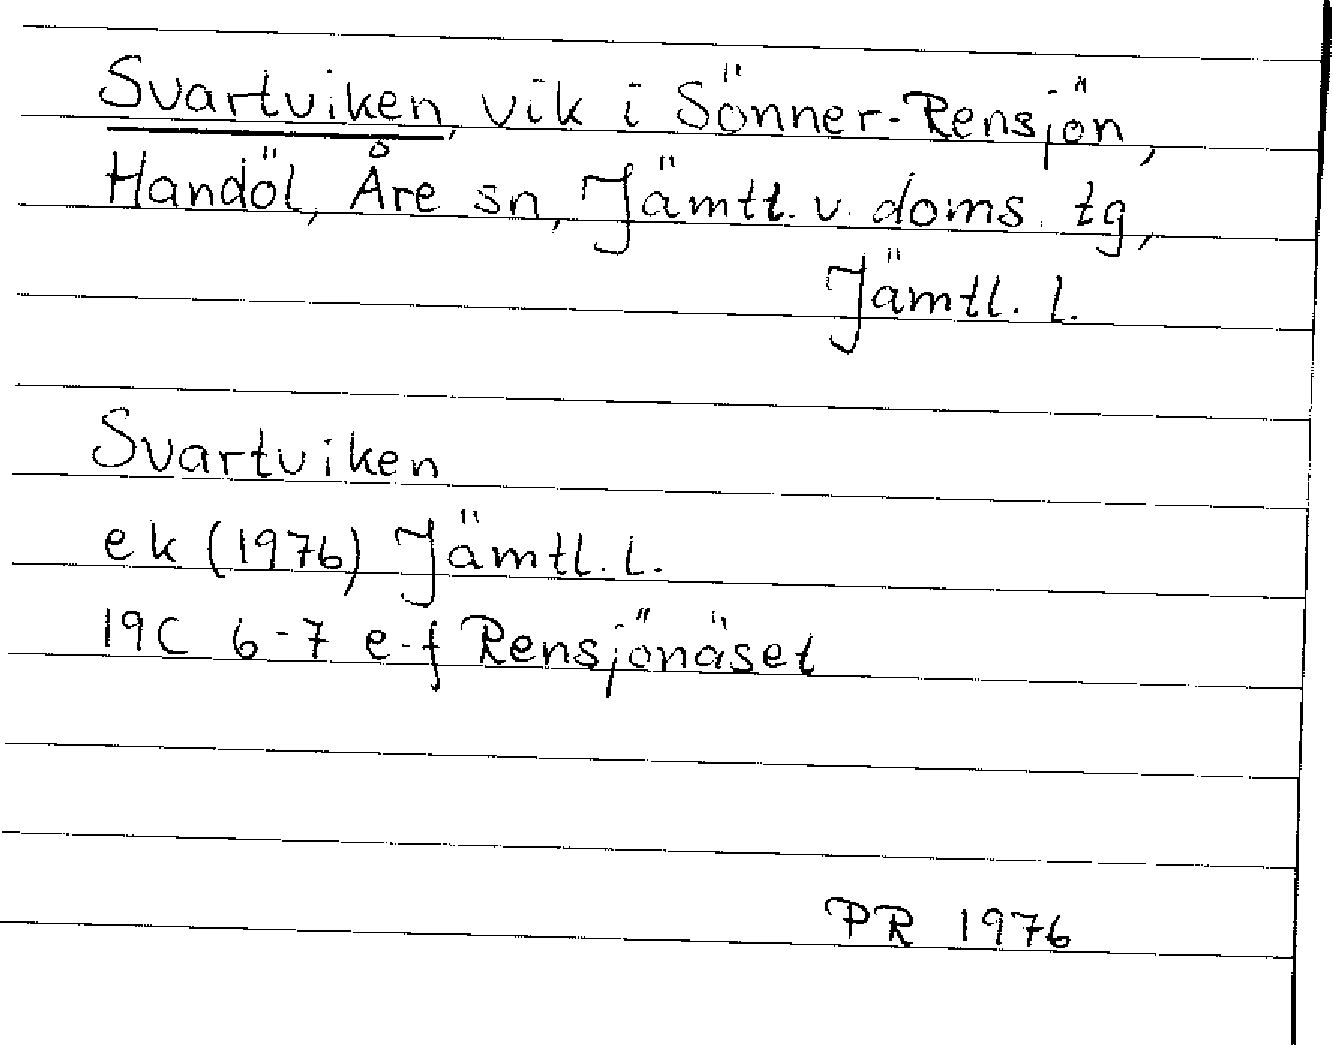 Svartviken, vik i Sönner-Rensjön,
Handöl, Åre sn, Jämtl. v. doms. tg,
Jämtl. l.
Svartviken
ek (1976) Jämtl. l.
19C 6-7 e-f Rensjönäset
PR 1976